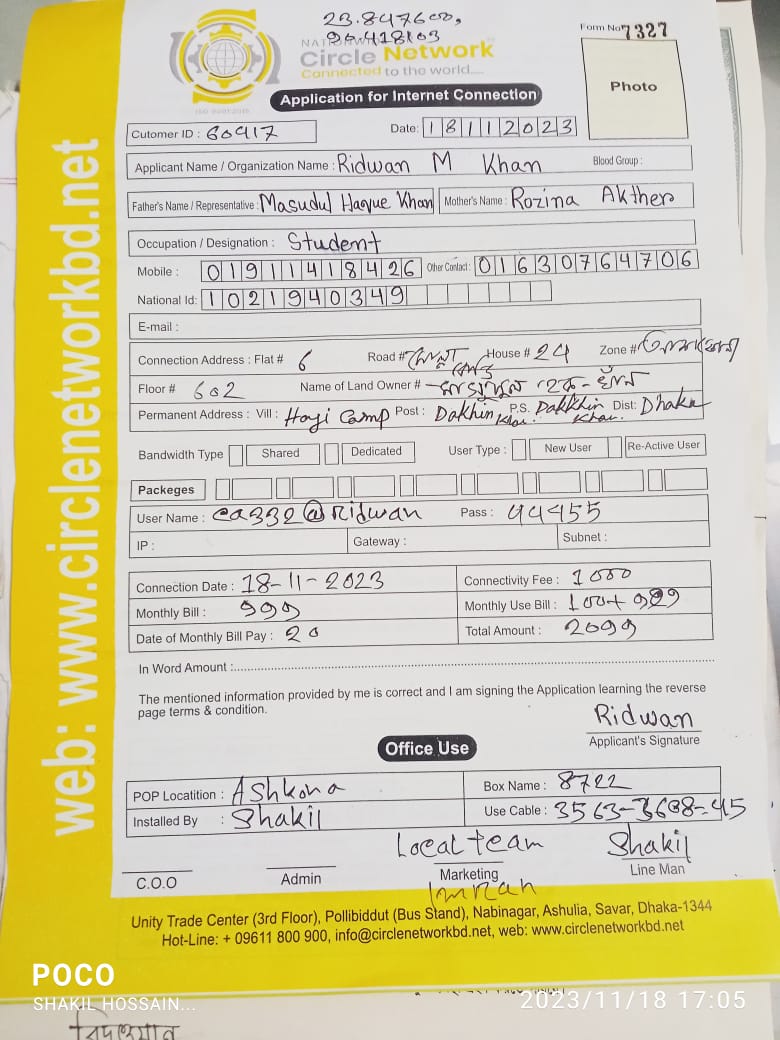 23.847600,
90.418103
Form No 7327
NATIONWIDE
Circle Network
Connected to the world....
ISO 9001:2015
Photo
Application for Internet Connection
Cutomer ID : 60417
Date: 18112023
Applicant Name / Organization Name : Ridwan M Khan Blood Group :
Father's Name / Representative : Masudul Haque Khan Mother's Name : Rozina Akther
Occupation / Designation : Student
Mobile : 01911418426 Other Contact : 01630764706
National Id: 1021940349
E-mail :
Connection Address : Flat # 6 Road # House # 24 Zone #
Floor # 602 Name of Land Owner #
Permanent Address : Vill : Hagi Camp Post : Dakhin Khan. P.S. Dakkhin Khan. Dist: Dhaka
Bandwidth Type Shared Dedicated User Type : New User Re-Active User
Packeges
User Name : ca332@ridwan Pass : 44455
IP : Gateway : Subnet :
Connection Date : 18-11-2023 Connectivity Fee : 1000
Monthly Bill : 999 Monthly Use Bill : 100+ 999
Date of Monthly Bill Pay : 20 Total Amount : 2099
In Word Amount :
The mentioned information provided by me is correct and I am signing the Application learning the reverse
page terms & condition.
Ridwan
Applicant's Signature
Office Use
POP Locatition : Ashkona Box Name : 8722
Installed By : Shakil Use Cable : 3563-3608-45
Local team Shakil
C.O.O Admin Marketing Line Man
Imran
Unity Trade Center (3rd Floor), Pollibiddut (Bus Stand), Nabinagar, Ashulia, Savar, Dhaka-1344
Hot-Line: + 09611 800 900, info@circlenetworkbd.net, web: www.circlenetworkbd.net
web: www.circlenetworkbd.net
POCO
SHAKIL HOSSAIN...
2023/11/18 17:05